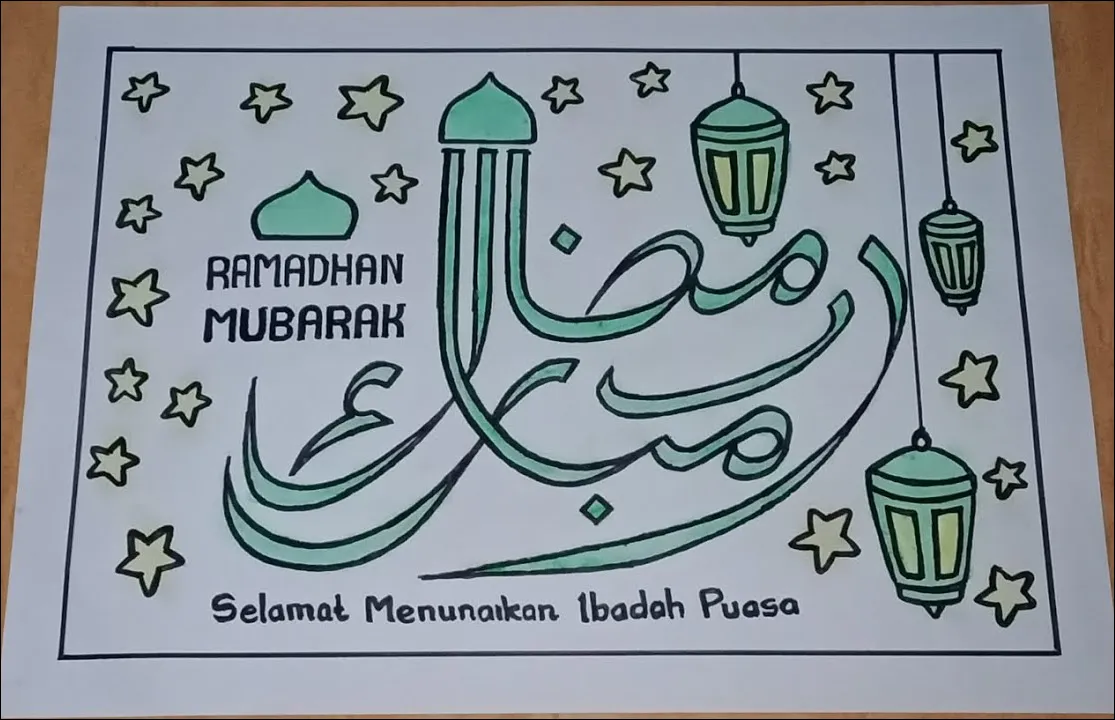 رمضان
مبارك
RAMADHAN
MUBARAK
Selamat Menunaikan Ibadah Puasa